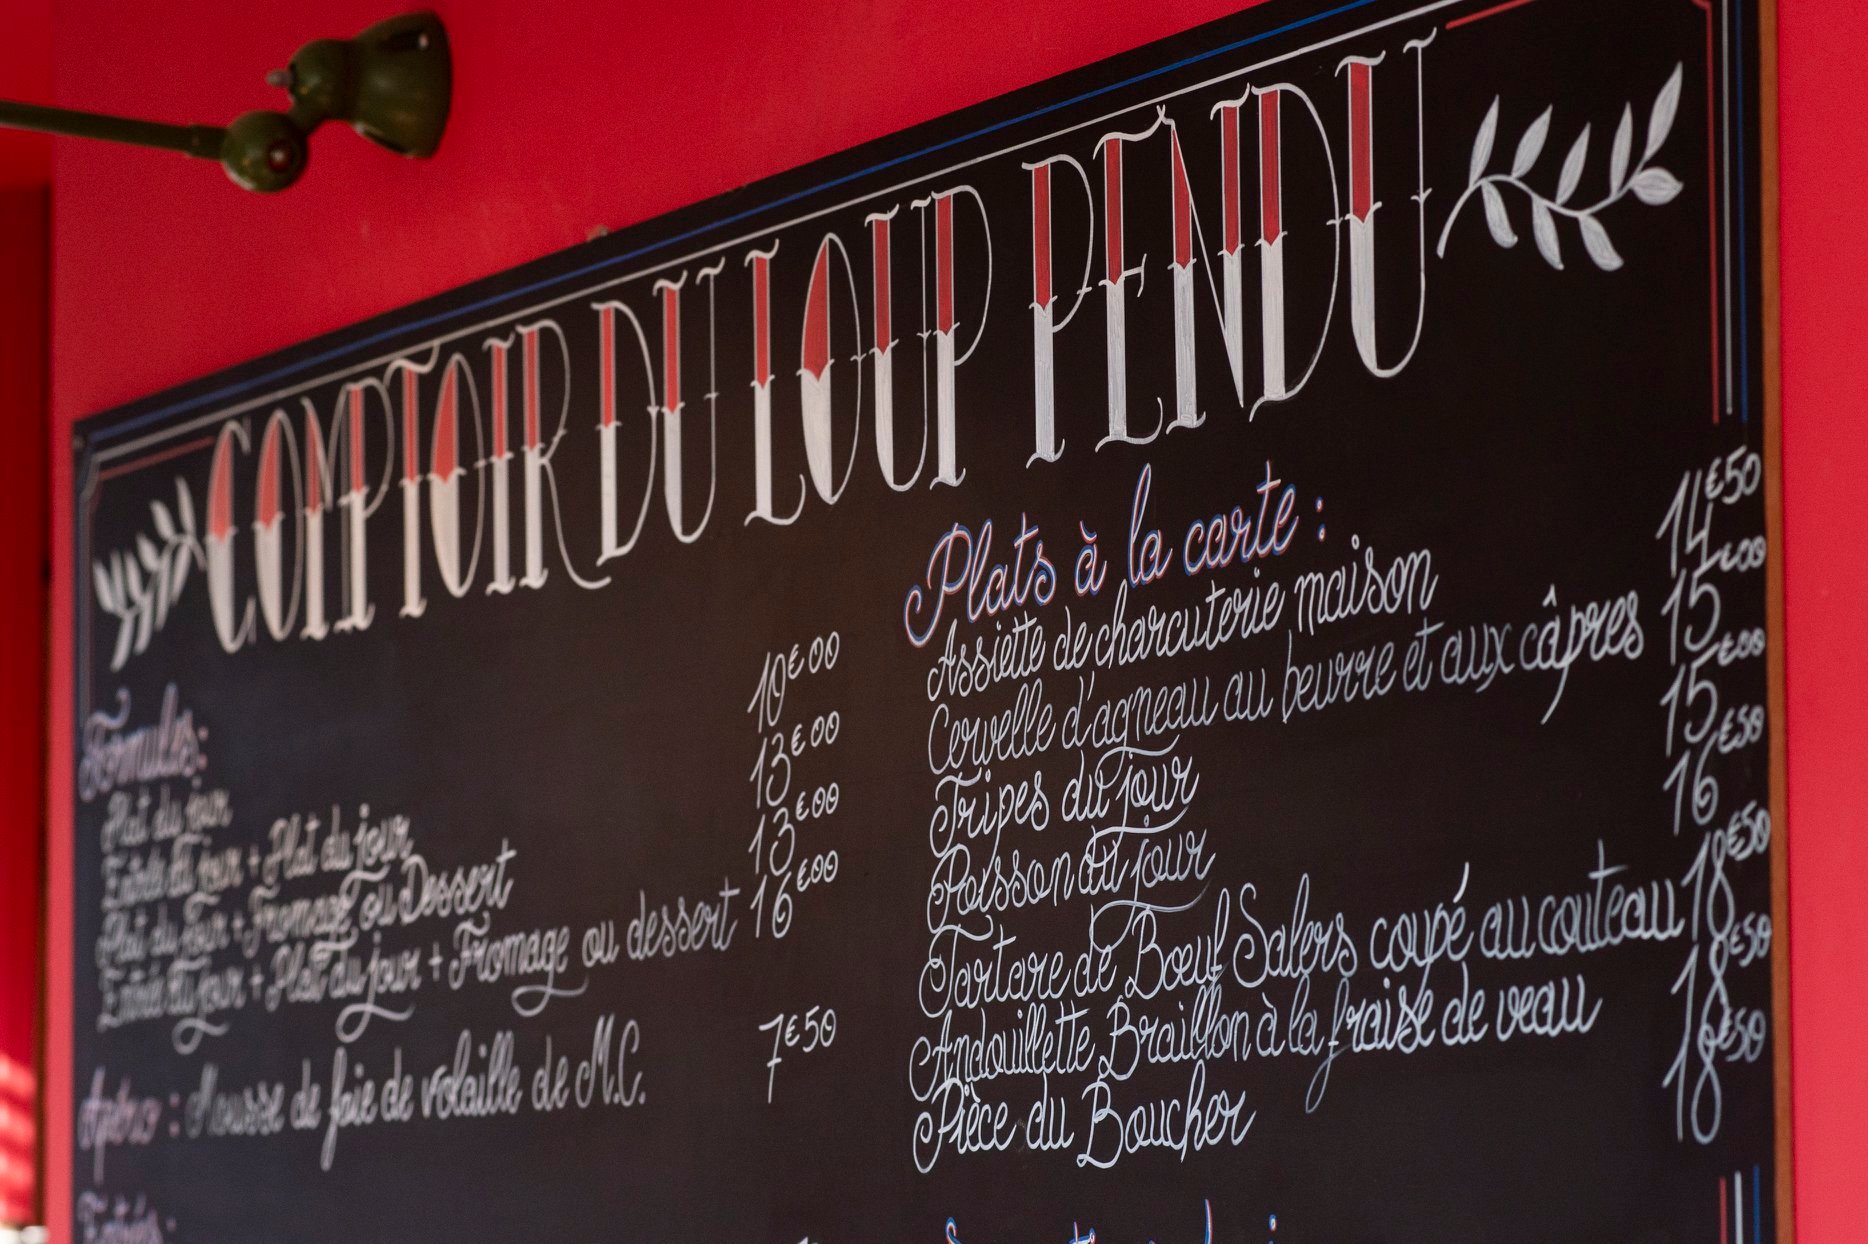 COMPTOIR DU LOUP PENDU
Formules:
Plat du jour 10€00
Entrée du jour + Plat du jour 13€00
Plat du Jour + Fromage ou Dessert 13€00
Entrée du jour + Plat du jour + Fromage ou dessert 16€00
Apéro : Mousse de foie de volaille de M.C. 7€50
Entrées:
Plats à la carte :
Assiette de charcuterie maison 14€50
Cervelle d'agneau au beurre et aux câpres 15€00
Tripes du jour 15€00
Poisson du jour 16€50
Tartare de Bœuf Salers coupé au couteau 18€50
Andouillette Braillon à la fraise de veau 18€50
Pièce du Boucher 18€50